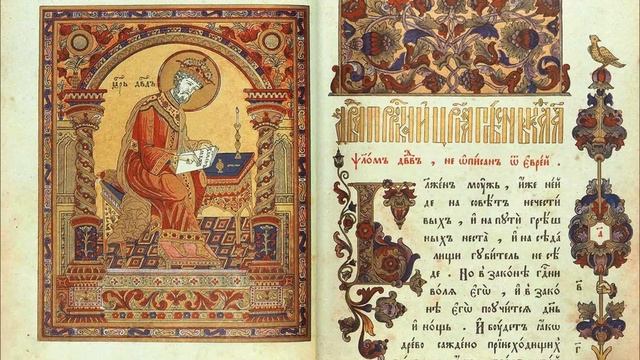 цр҃ь дв҃дъ
Ѱло́мъ дв҃дъ , не ѡ҆пи́санъ ѿ є҆вре́й .
Бл҃же́нъ мꙋ́жь , и҆́же не и҆́
де на совѣ́тъ нечести́
выхъ , и҆ на пꙋтѝ грѣ́ш
ныхъ неста̀ , и҆ на сѣда́
лищи гꙋби́тель не сѣ́
де . Но в зако́нѣ гд҃ни
во́лѧ є҆гѡ̀ , и҆ в зако́
нѣ є҆гѡ̀ поꙋчи́тсѧ дн҃ь
и҆ но́щь . И҆ бꙋ́детъ ꙗ҆́кѡ
дре́во саждено̀ при и҆схо́дищихъ
а҃
в҃
г҃